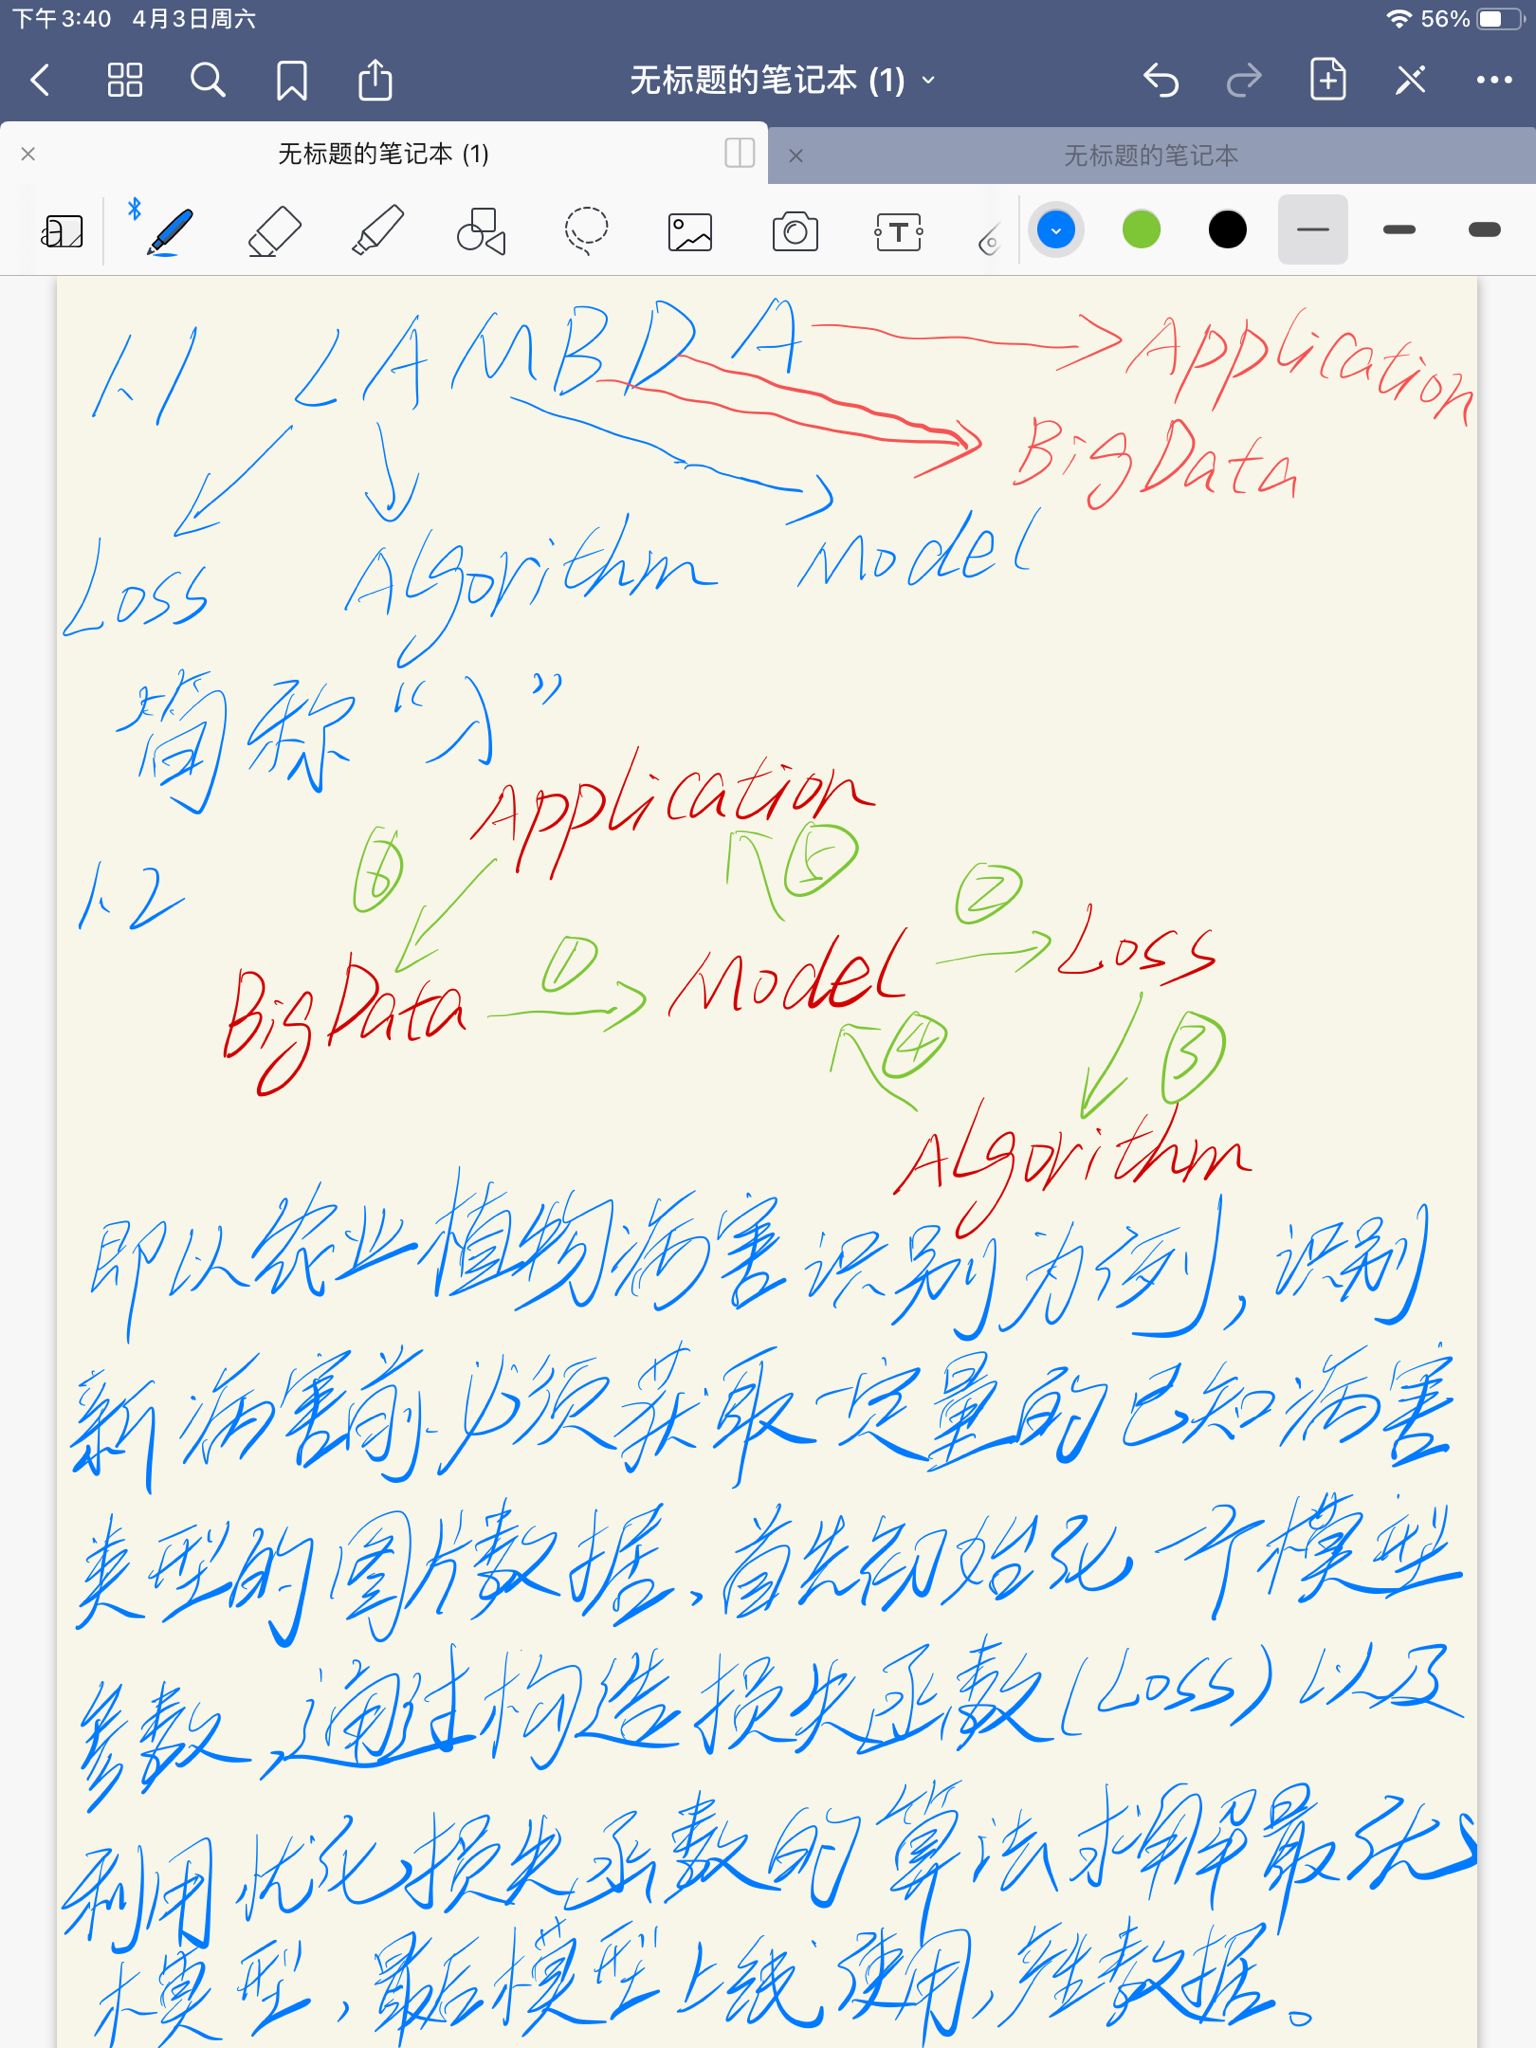 下午3:40 4月3日周六 56%
无标题的笔记本 (1)
无标题的笔记本 (1) 无标题的笔记本
1.1 LAMBDA Application
BigData
Loss Algorithm Model
简称“入”
Application
1.2 ⑥ ⑤ ②
BigData ① Model Loss
④ ③
Algorithm
即以农业植物病害识别为例，识别
新病害前必须获取一定量的已知病害
类型的图片数据、首先初始化一个模型
参数，通过构造损失函数(Loss)以及
利用优化损失函数的算法求解最优
模型，最后模型上线使用，产生数据。